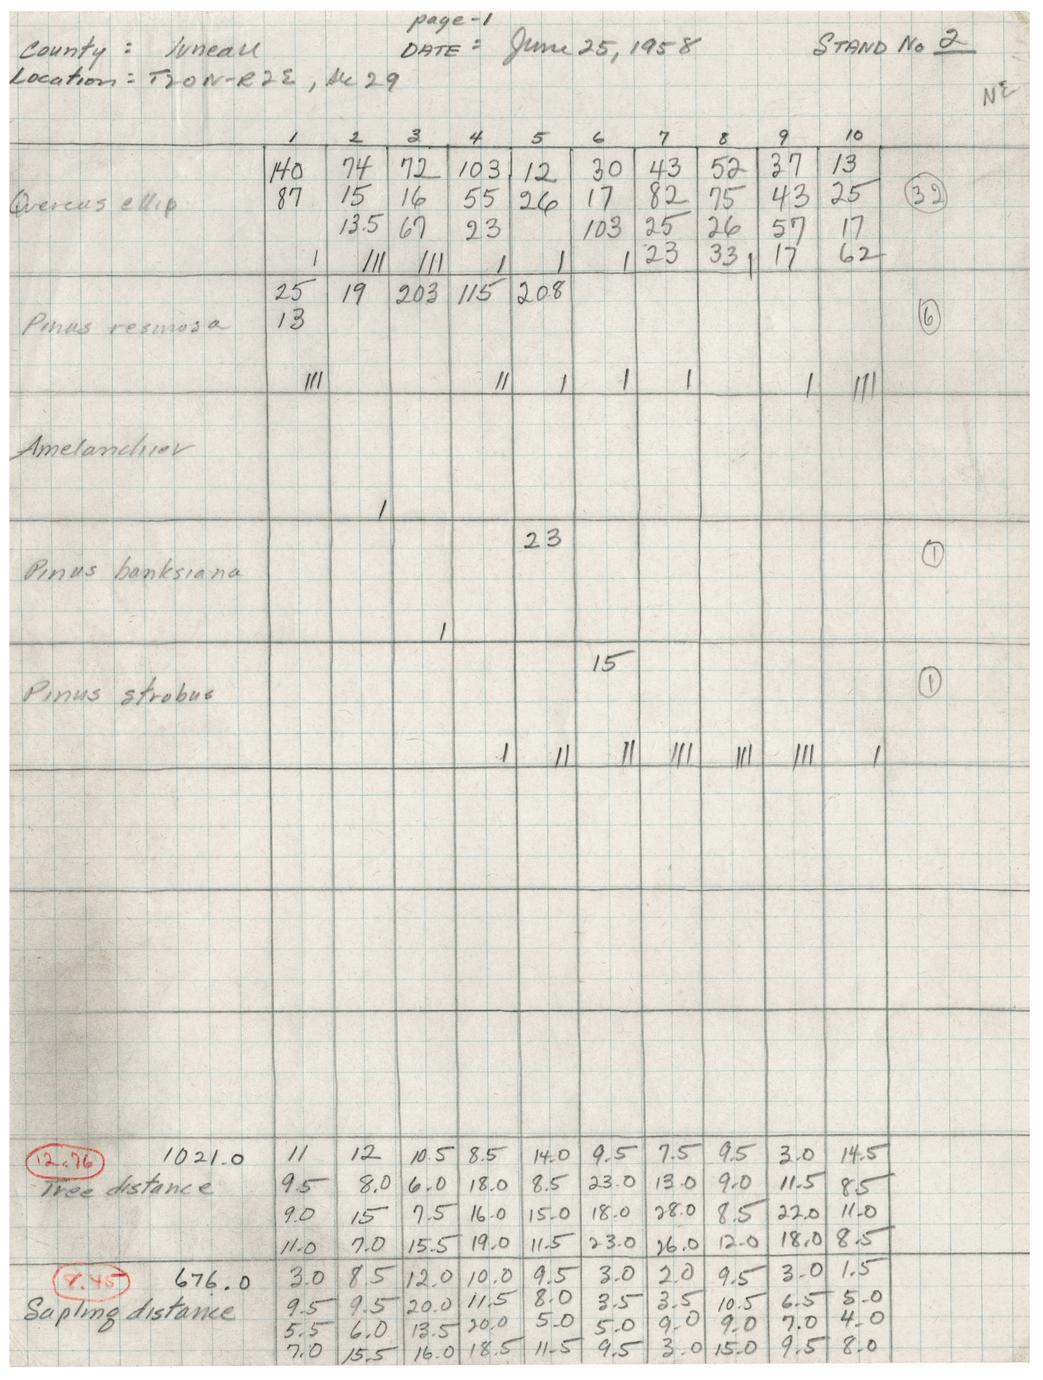 page-1
County: Juneau DATE: June 25, 1958 STAND No 2
Location: T20N-R2E, Sec 29
NE
1 2 3 4 5 6 7 8 9 10
140 74 72 103 12 30 43 52 37 13
Quercus ellip 87 15 16 55 26 17 82 75 43 25 (32)
13.5 67 23 103 25 26 57 17
| ||| ||| | | | 23 33 | 17 62
25 19 203 115 208
Pinus resinosa 13 (6)
||| || | | | | |||
Amelanchier
|
23
Pinus banksiana (1)
|
15
Pinus strobus (1)
| || || ||| ||| ||| |
12.76 1021.0 11 12 10.5 8.5 14.0 9.5 7.5 9.5 3.0 14.5
Tree distance 9.5 8.0 6.0 18.0 8.5 23.0 13.0 9.0 11.5 8.5
9.0 15 7.5 16.0 15.0 18.0 28.0 8.5 22.0 11.0
11.0 7.0 15.5 19.0 11.5 23.0 26.0 12.0 18.0 8.5
8.45 676.0 3.0 8.5 12.0 10.0 9.5 3.0 2.0 9.5 3.0 1.5
Sapling distance 9.5 9.5 20.0 11.5 8.0 3.5 3.5 10.5 6.5 5.0
5.5 6.0 13.5 20.0 5.0 5.0 9.0 9.0 7.0 4.0
7.0 15.5 16.0 18.5 11.5 9.5 3.0 15.0 9.5 8.0